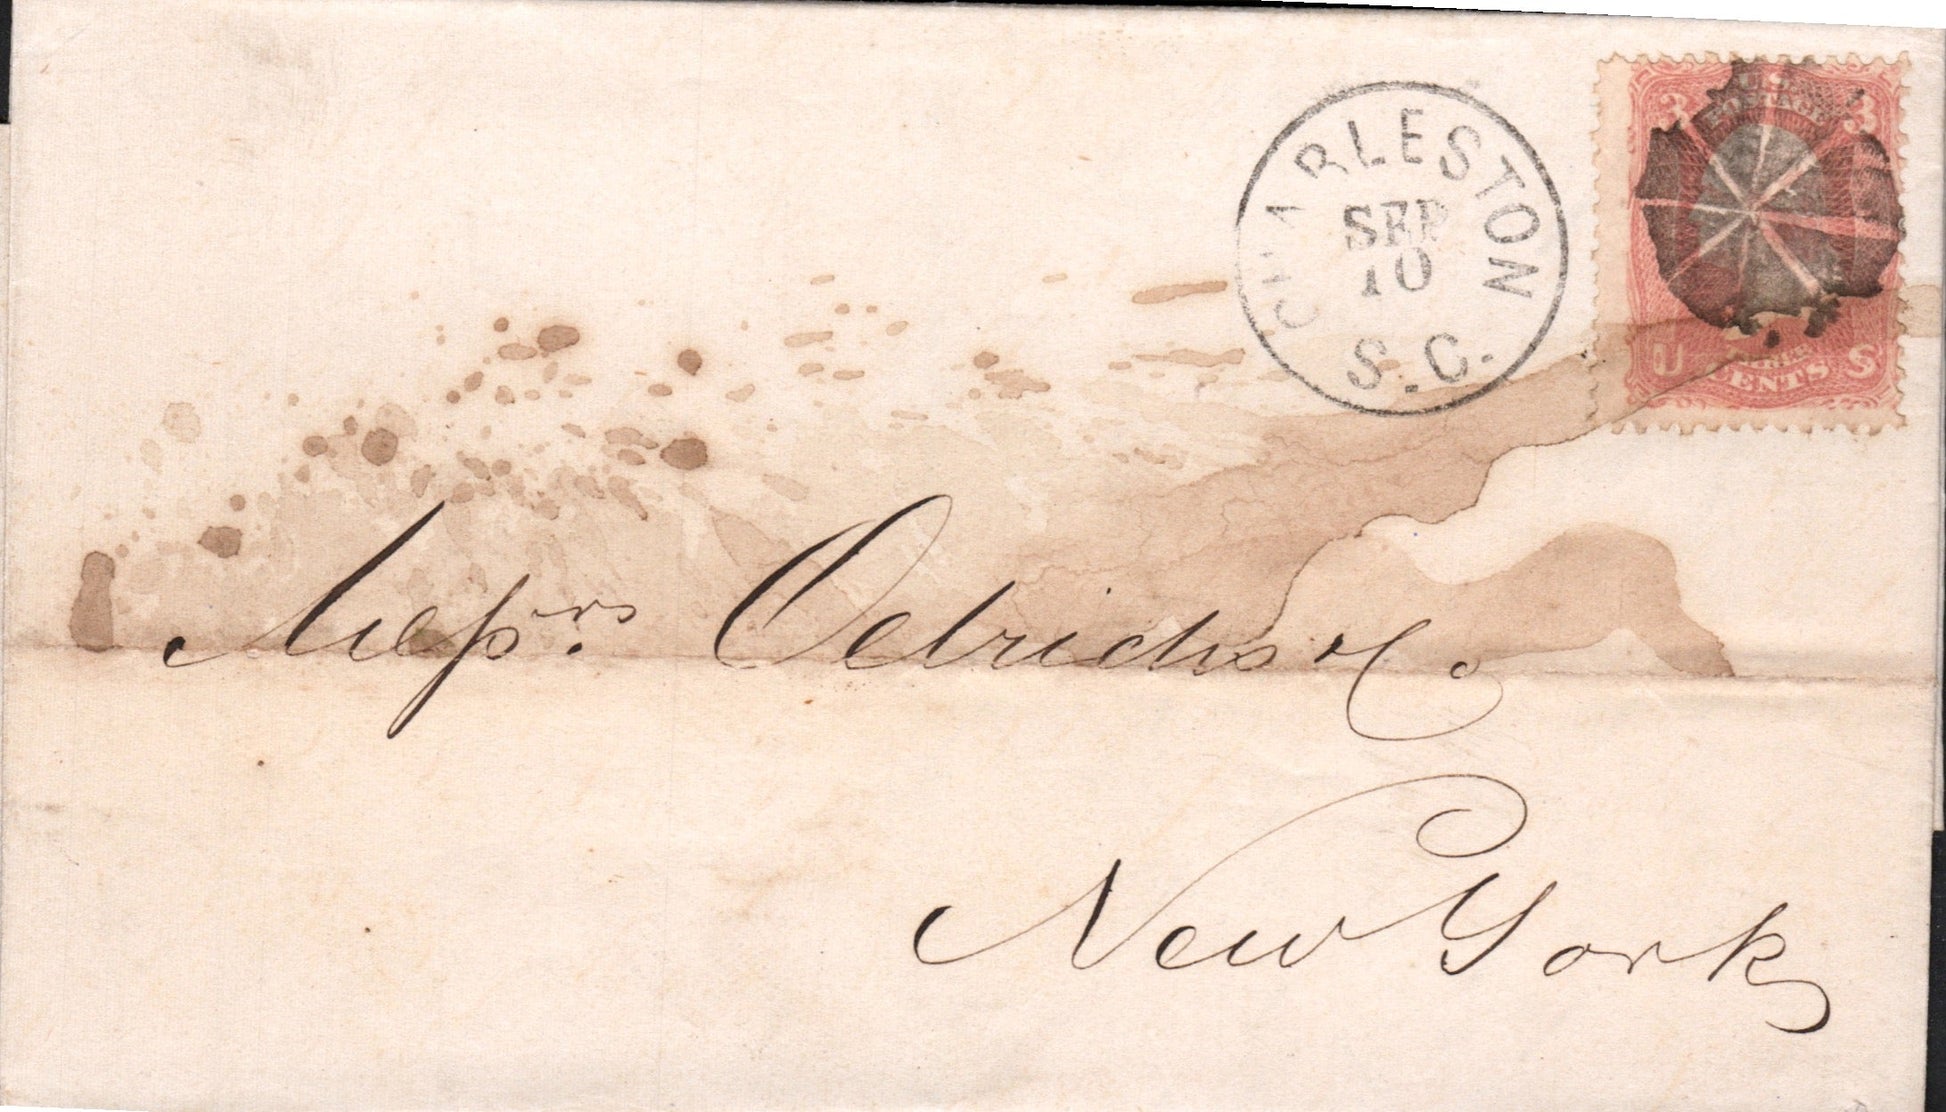 CHARLESTON
SEP
10
S.C.
U.S.
POSTAGE
3 3
U THREE S
CENTS
Messrs. Oelrichs & Co
New York